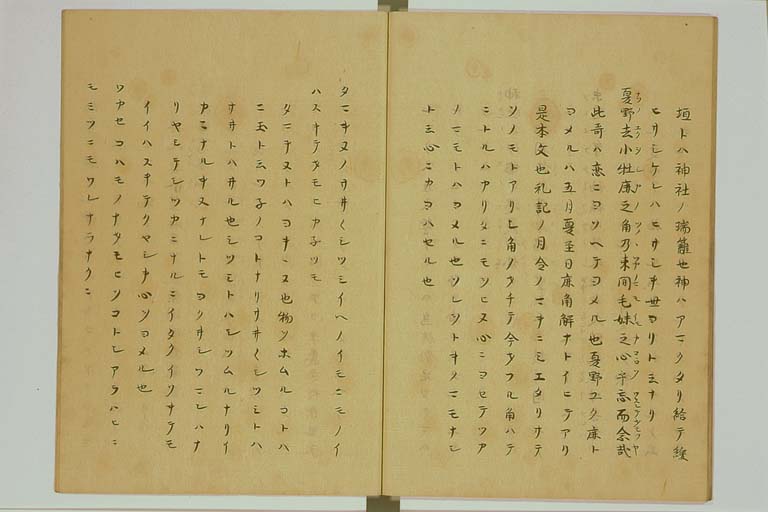 垣トハ神社ノ瑞籬也神ハアマクタリ給テ経
ヒサシケレハヒサシキ世ヨリト云ナリ
夏野去小牡鹿之角乃束間毛妹之心乎忘而念哉
此哥ハ恋ニヨソヘテヨメル也夏野ユク鹿ト
ヨメルハ五月夏至日鹿角解ナトイヒテアリ
是本文也礼記ノ月令ノマキニミエタリサテ
ソノモトアリシ角ノヲチテ今ヲフル角ハテ
ニトルハカリタニモソヒヌ心ニヨセテツア
ノマモトハヨメル也ソレソトキノマモナシ
ト云心ニカヨハセル也
タマキヌノサヰ〱シツミイヘノイモニモノイ
ハスキテヲモヒカネツモ
タマキヌトハヨキキヌ也物ヲホムルコトハ
ニ玉ト云ツネノコトナリサヰ〱シツミトハ
サヰトハサル也シツミトハシツムルナリイ
カナルキヌナレトモヨリサシワニシハナ
リヤシテシツカニナルニイタクイソナテモ
イイハスキテクヤシキ心ヲヨメル也
ワカセコハモノナヲモヒソコトシアラハヒニ
モミツニモワレナラナクニ